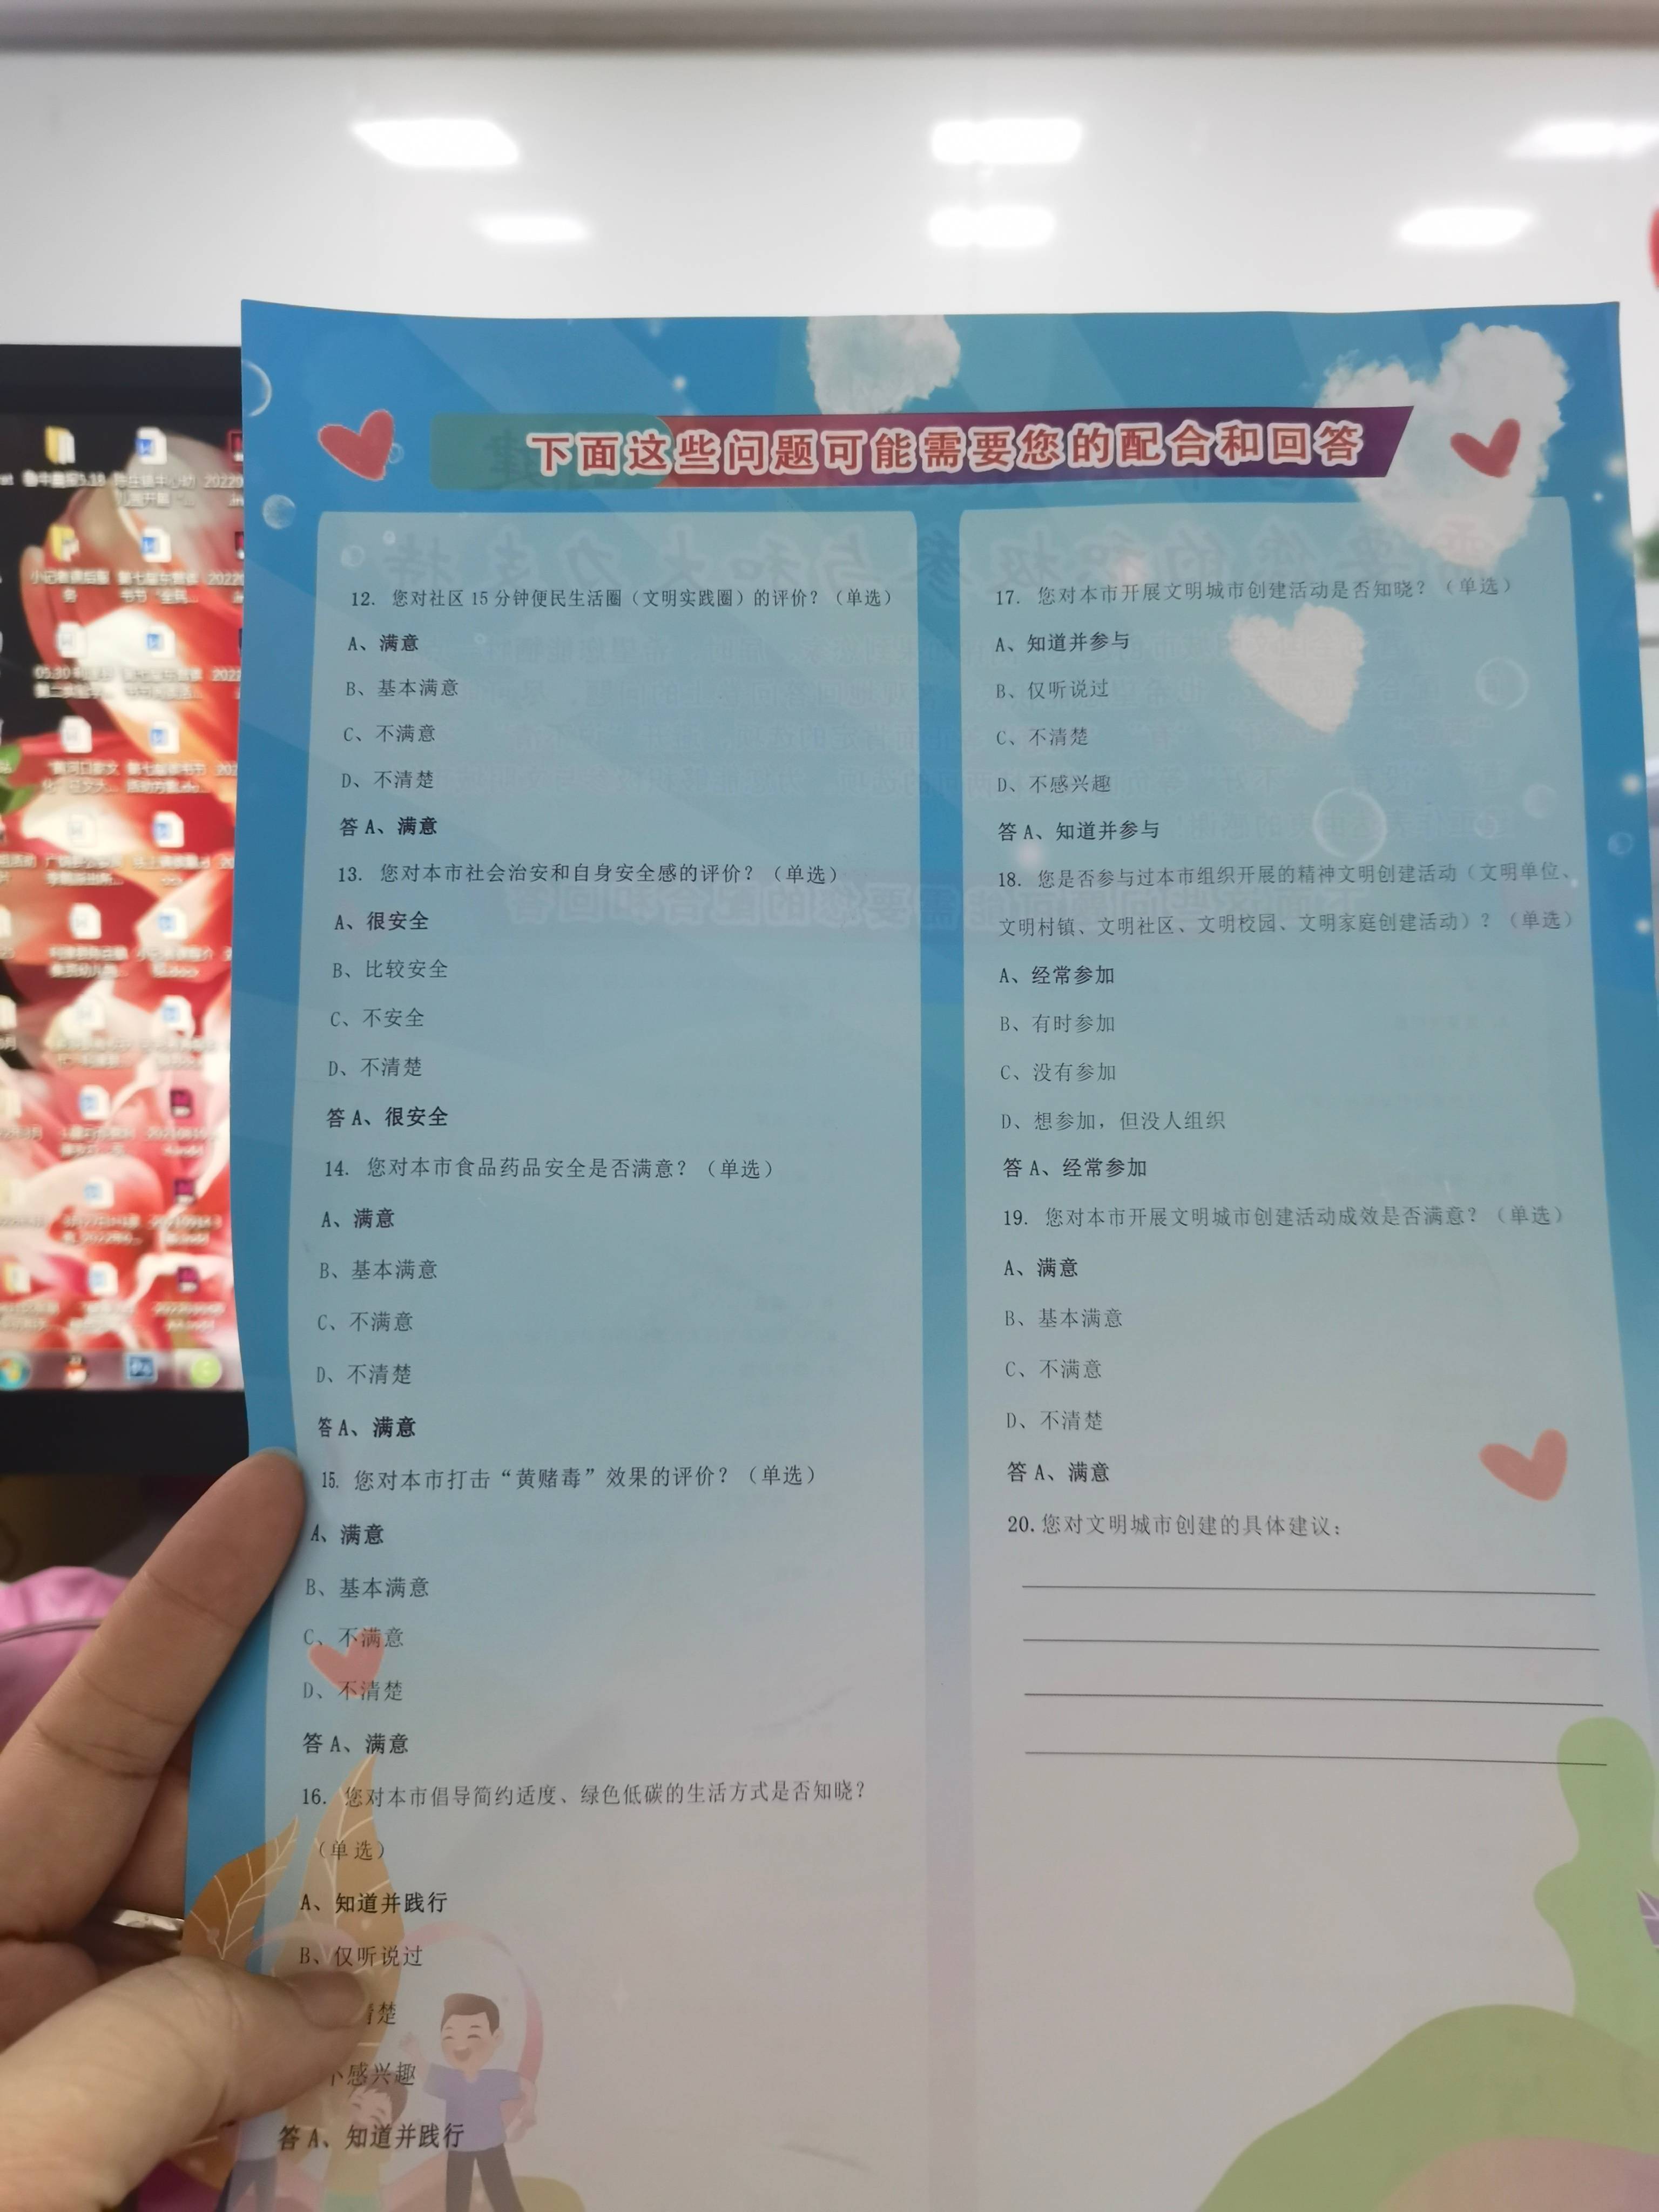 下面这些问题可能需要您的配合和回答
12. 您对社区 15 分钟便民生活圈（文明实践圈）的评价？（单选）
A、满意
B、基本满意
C、不满意
D、不清楚
答 A、满意
13. 您对本市社会治安和自身安全感的评价？（单选）
A、很安全
B、比较安全
C、不安全
D、不清楚
答 A、很安全
14. 您对本市食品药品安全是否满意？（单选）
A、满意
B、基本满意
C、不满意
D、不清楚
答 A、满意
15. 您对本市打击“黄赌毒”效果的评价？（单选）
A、满意
B、基本满意
C、不满意
D、不清楚
答 A、满意
16. 您对本市倡导简约适度、绿色低碳的生活方式是否知晓？
（单选）
A、知道并践行
B、仅听说过
清楚
不感兴趣
答 A、知道并践行
17. 您对本市开展文明城市创建活动是否知晓？（单选）
A、知道并参与
B、仅听说过
C、不清楚
D、不感兴趣
答 A、知道并参与
18. 您是否参与过本市组织开展的精神文明创建活动（文明单位、
文明村镇、文明社区、文明校园、文明家庭创建活动）？（单选）
A、经常参加
B、有时参加
C、没有参加
D、想参加，但没人组织
答 A、经常参加
19. 您对本市开展文明城市创建活动成效是否满意？（单选）
A、满意
B、基本满意
C、不满意
D、不清楚
答 A、满意
20.您对文明城市创建的具体建议：